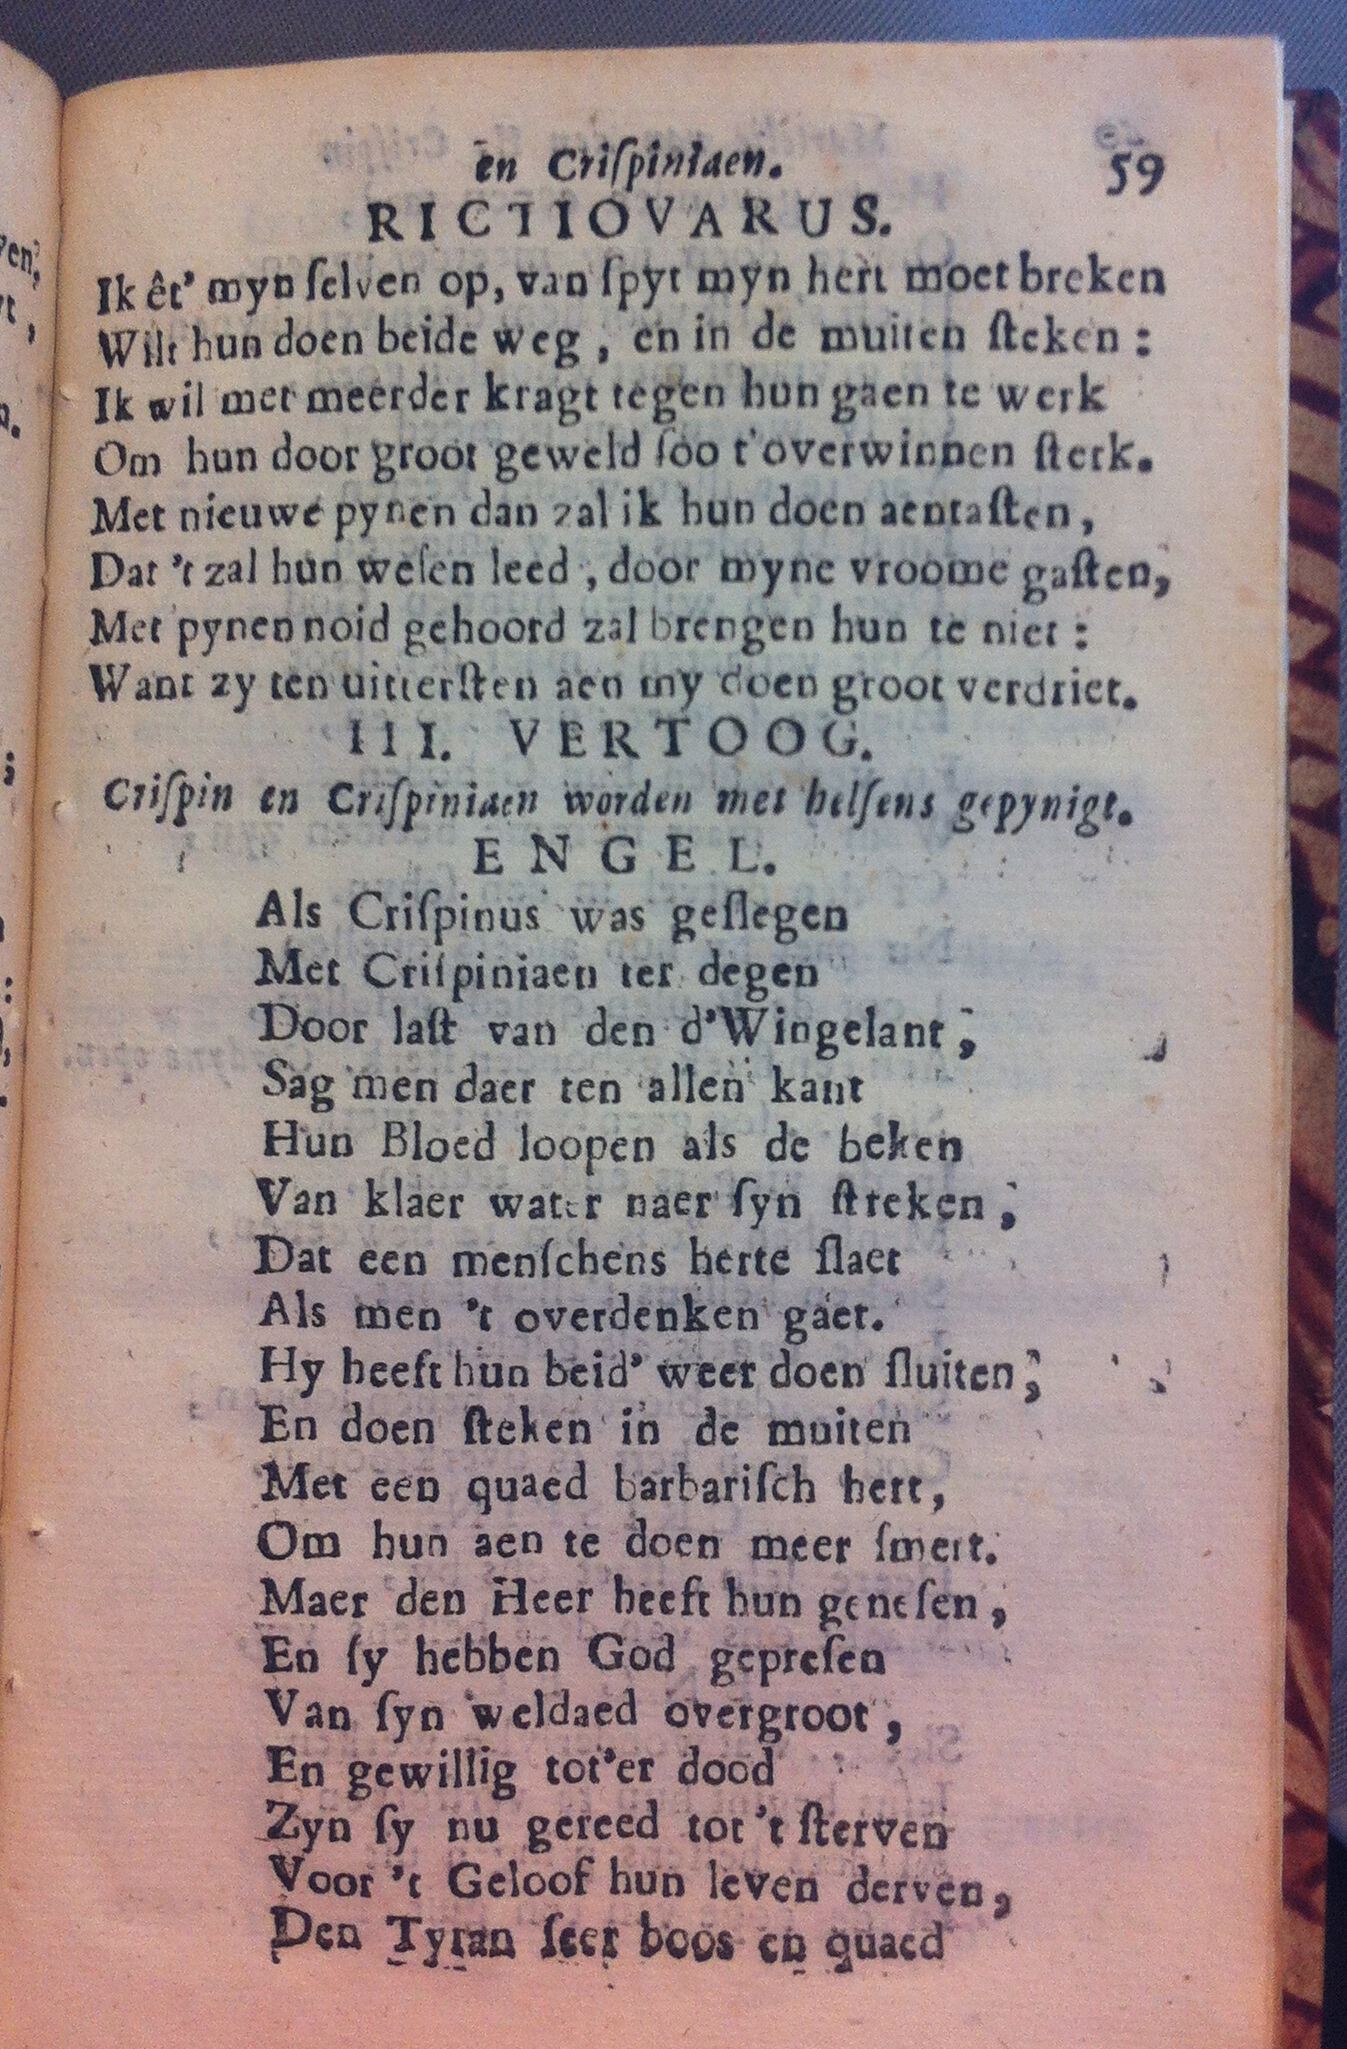 en Criſpiniaen. 59
RICTIOVARUS.
Ik êt' myn ſelven op, van ſpyt myn hert moet breken
Wilt hun doen beide weg, en in de muiten ſteken:
Ik wil met meerder kragt tegen hun gaen te werk
Om hun door groot geweld ſoo t'overwinnen ſterk.
Met nieuwe pynen dan zal ik hun doen aentaſten,
Dat 't zal hun weſen leed, door myne vroome gaſten,
Met pynen noid gehoord zal brengen hun te niet:
Want zy ten uitterſten aen my doen groot verdriet.
III. VERTOOG.
Criſpin en Criſpiniaen worden met helſens gepynigt.
ENGEL.
Als Criſpinus was geſlegen
Met Criſpiniaen ter degen
Door laſt van den d'Wingelant,
Sag men daer ten allen kant
Hun Bloed loopen als de beken
Van klaer water naer ſyn ſtreken,
Dat een menſchens herte ſlaet
Als men 't overdenken gaet.
Hy heeft hun beid' weer doen ſluiten,
En doen ſteken in de muiten
Met een quaed barbariſch hert,
Om hun aen te doen meer ſmert.
Maer den Heer heeft hun geneſen,
En ſy hebben God gepreſen
Van ſyn weldaed overgroot,
En gewillig tot'er dood
Zyn ſy nu gereed tot 't ſterven
Voor 't Geloof hun leven derven,
Den Tyran ſeer boos en quaed